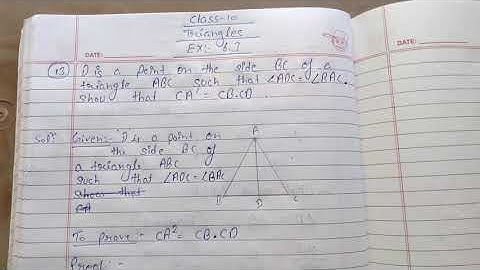 Class-10
Triangles
Ex:- 6.3
DATE:
DATE:
13 D is a point on the side BC of a
triangle ABC such that ∠ADC = ∠BAC.
show that CA² = CB.CD.
Solⁿ Given:- D is a point on
the side BC of
a triangle ABC
such that ∠ADC = ∠BAC
show that
CA
A
B
D
C
To prove:- CA² = CB.CD
Proof:-